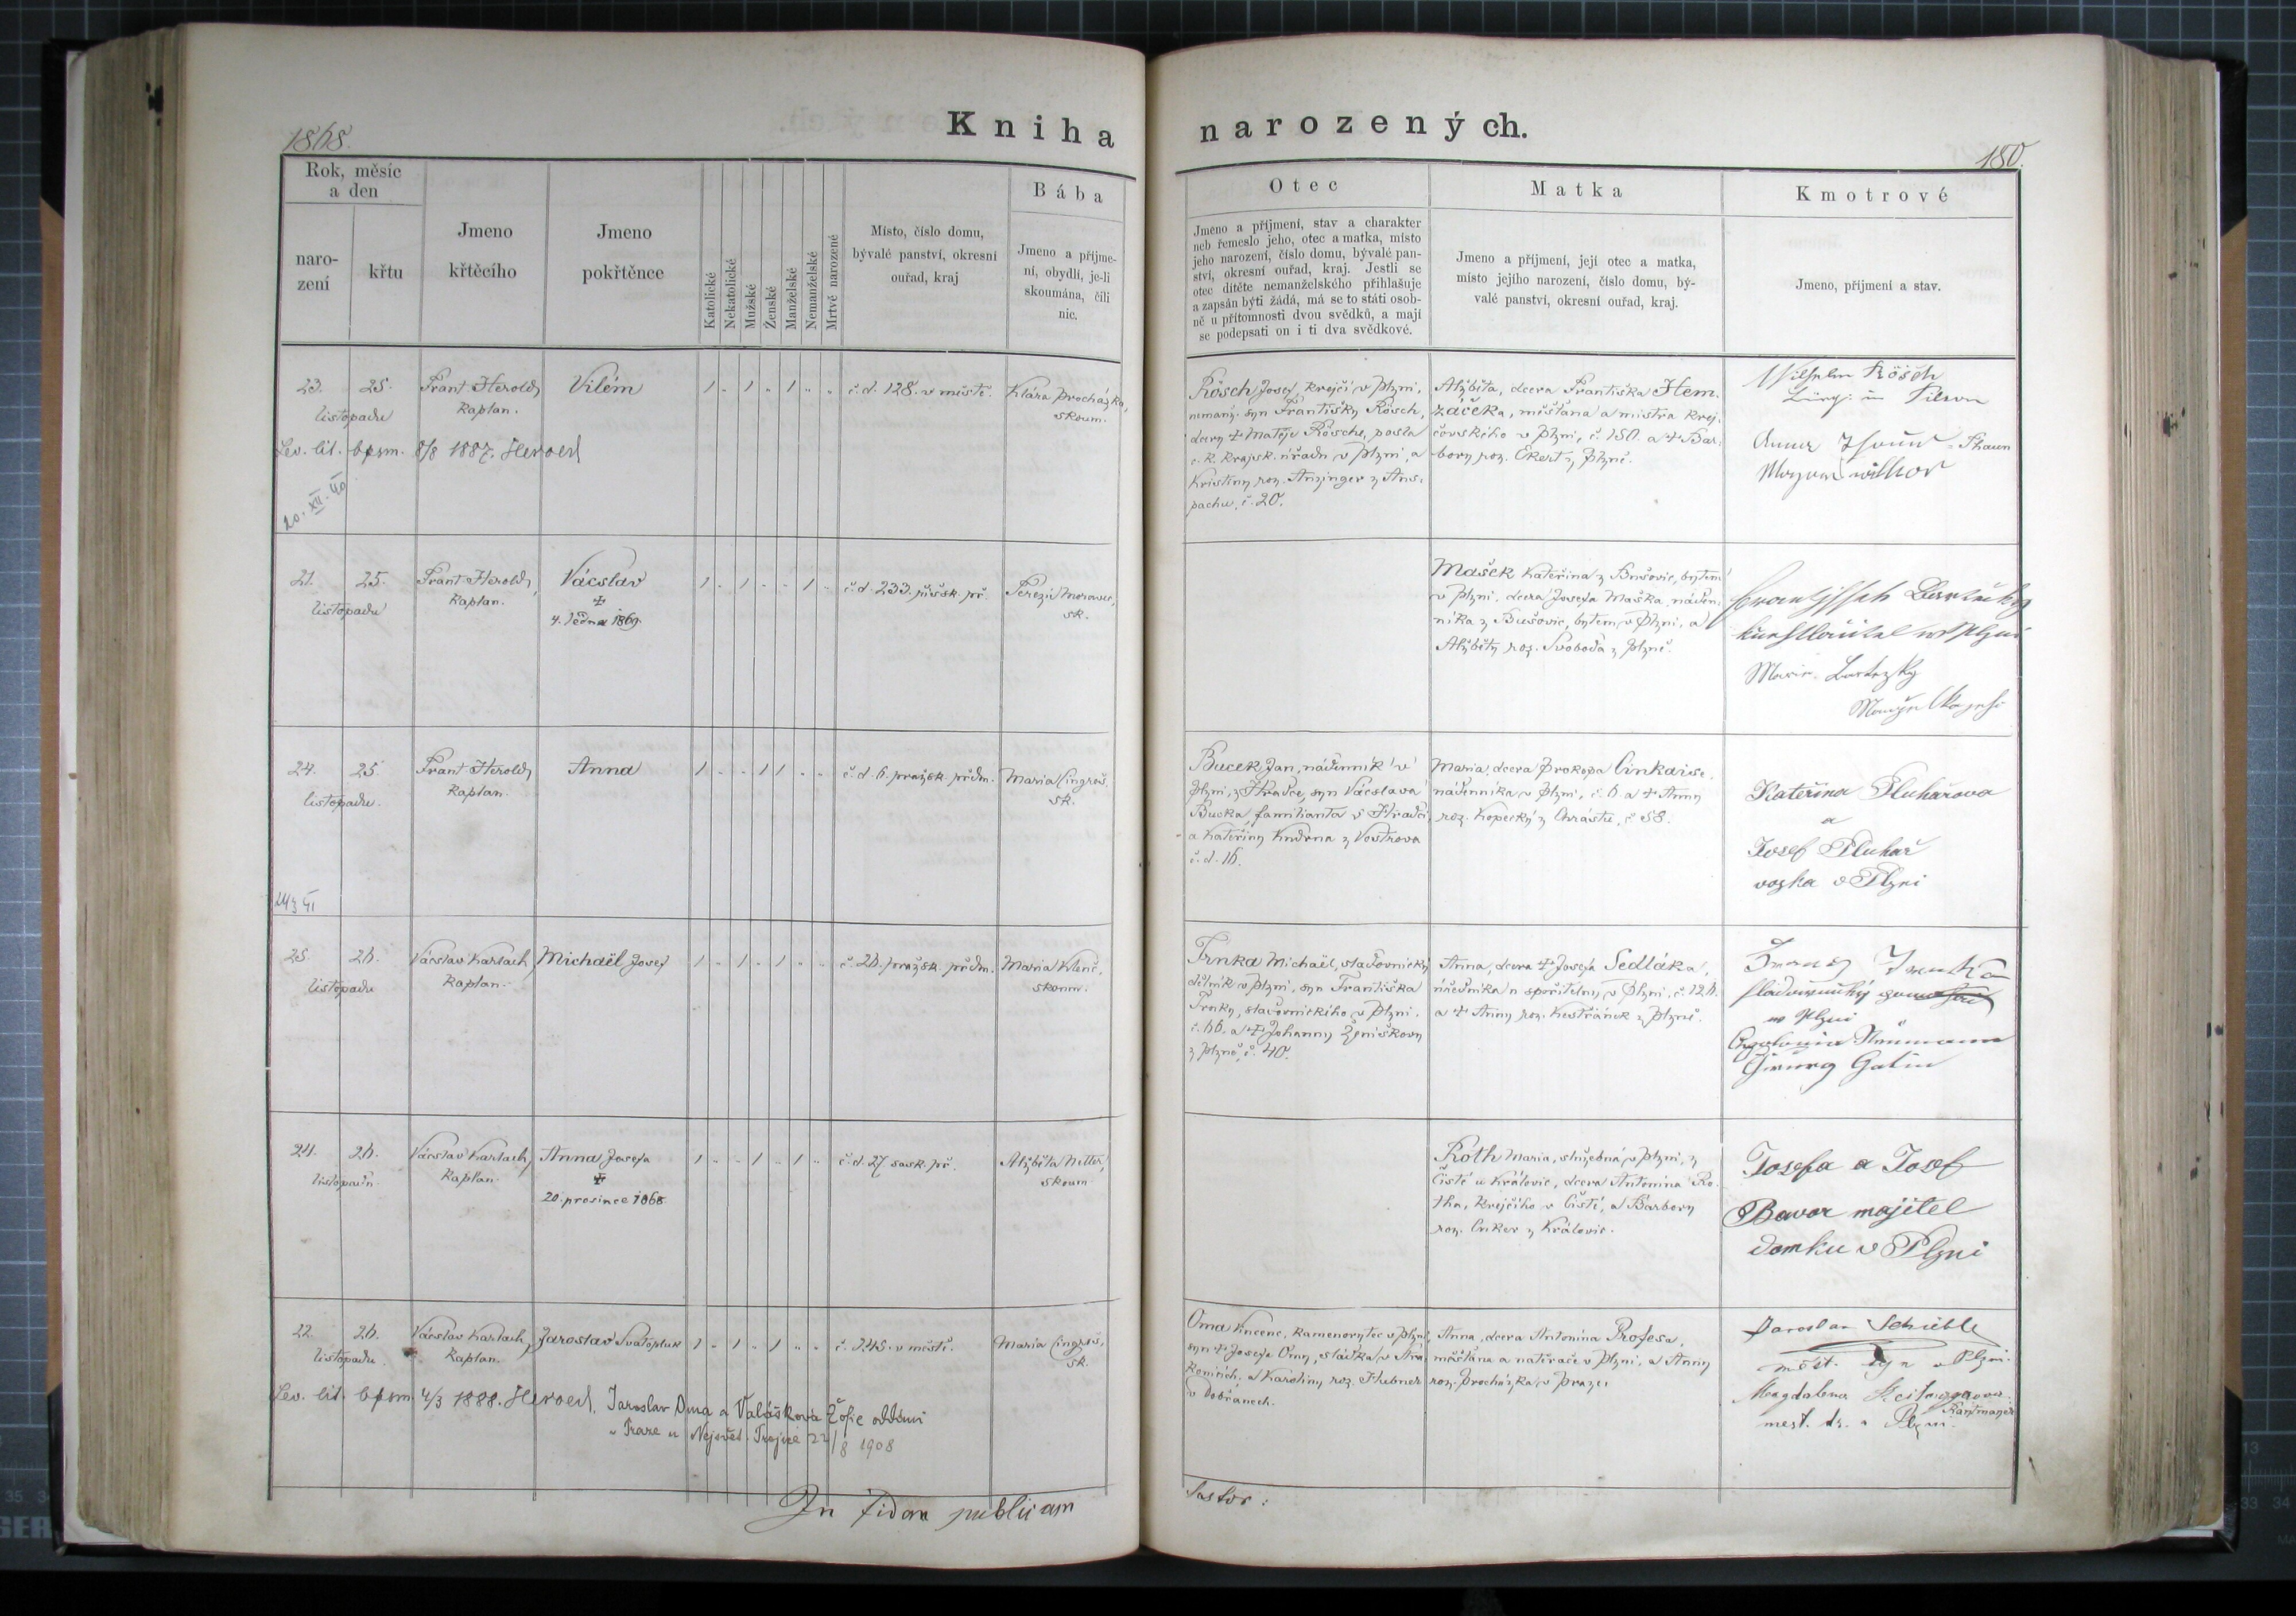 1868.
Kniha
narozených.
180.
Rok, měsíc
a den
naro-
zení
křtu
Jmeno
křtěcího
Jmeno
pokřtěnce
Katolické
Nekatolické
Mužské
Ženské
Manželské
Nemanželské
Mrtvě narozené
Místo, číslo domu,
bývalé panství, okresní
ouřad, kraj
Bába
Jmeno a přijme-
ní, obydlí, je-li
skoumána, čili
nic.
Otec
Jmeno a příjmení, stav a charakter
neb řemeslo jeho, otec a matka, místo
jeho narození, číslo domu, bývalé pan-
ství, okresní ouřad, kraj. Jestli se
otec dítěte nemanželského přihlašuje
a zapsán býti žádá, má se to státi osob-
ně u přítomnosti dvou svědků, a mají
se podepsati on i ti dva svědkové.
Matka
Jmeno a příjmení, její otec a matka,
místo jejího narození, číslo domu, bý-
valé panství, okresní ouřad, kraj.
Kmotrové
Jmeno, příjmení a stav.
23. 25.
listopadu
Frant. Herold,
Kaplan.
Vilém
1 " 1 " 1 " "
č. d. 128. v městě.
Klára Procházka,
skoum.
Lev. lit. bpsm. 8/8 1887. Heroed
20. XII. 40
Rösch Josef, krejčí v Plzni,
nemanž. syn Františky Rösch,
dcery + Matěje Rösche, posla
c. k. krajsk. úřadu v Plzni, a
Kristiny roz. Anzinger z Ans-
pachu, č. 20.
Alžběta, dcera Františka Hem-
záčeka, měšťana a mistra krej-
čovského v Plzni, č. 150. a + Bar-
bory roz. Ekert z Plzně.
Wilhelm Rösch
in Pilsen
Anna
21. 25.
listopadu
Frant. Herold,
Kaplan.
Vácslav
+
4. ledna 1869.
1 " 1 " " 1 "
č. d. 233. říšsk. př.
Terezie Morawec,
sk.
Mašek Kateřina z Bušovic, bytem
v Plzni, dcera Josefa Maška, náden-
níka z Bušovic, bytem v Plzni, a
Alžběty roz. Svoboda z Plzně.
w Plzni
Marie
24. 25.
listopadu.
Frant. Herold,
Kaplan.
Anna
1 " " 1 1 " "
č. d. 6. pražsk. předm.
Maria Cingroš,
sk.
Bucek Jan, nádenník v
Plzni, z Hradce, syn Vácslava
Bucka, familianta v Hradci,
a Kateřiny Kudrna z Vostrova
č. d. 16.
Maria, dcera Prokopa Cinkaise,
nádenníka v Plzni, č. 6. a + Anny
roz. Kopecký z Chrástu, č. 58.
Kateřina Pluhařova
a
Josef Pluhař
v Plzni
25. 26.
listopadu
Vácslav Karlach,
Kaplan.
Michaël Josef
1 " 1 " 1 " "
č. 26. pražsk. předm.
Maria Klenč,
skoum.
Trnka Michaël, sladovnický
dělník v Plzni, syn Františka
Trnky, sladovnického v Plzni,
č. 66. a + Johanny Ženíškovy
z Plzně, č. 40.
Anna, dcera + Josefa Sedláka,
úředníka u spořitelny v Plzni, č. 126.
a + Anny roz. Kestřánek z Plzně.
Franz Trnka
w Plzni
24. 26.
listopadu.
Vácslav Karlach,
Kaplan.
Anna Josefa
+
20. prosince 1868
1 " " 1 " 1 "
č. d. 27 sask. př.
Alžběta Netter,
skoum.
Róth Maria, služebná v Plzni, z
Čisté u Královic, dcera Antonína Ro-
tha, krejčího v Čisté, a Barbory
roz. Cuker z Královic.
Josefa a Josef
Bavor majitel
domku v Plzni
22. 26.
listopadu.
Vácslav Karlach,
Kaplan.
Jaroslav Svatopluk
1 " 1 " 1 " "
č. 245. v městě.
Maria Cingroš,
sk.
Lev. lit. bpsm. 4/3 1888. Heroed. Jaroslav Oma a Valášková Žofie oddáni
v Praze u Nejsvět. Trojice 22/8 1908
Oma Vincenc, kamenorytec v Plzni,
syn + Josefa Omy, sládka v
a Karoliny roz. Hubner
v Dobřanech.
Anna, dcera Antonína Profesa,
měšťana a natěrače v Plzni, a Anny
roz. Procházka v Praze.
Jaroslav Schiebl
měšt. syn v Plzni.
Magdalena
mest. dc. v Plzni.
In fidem publicam